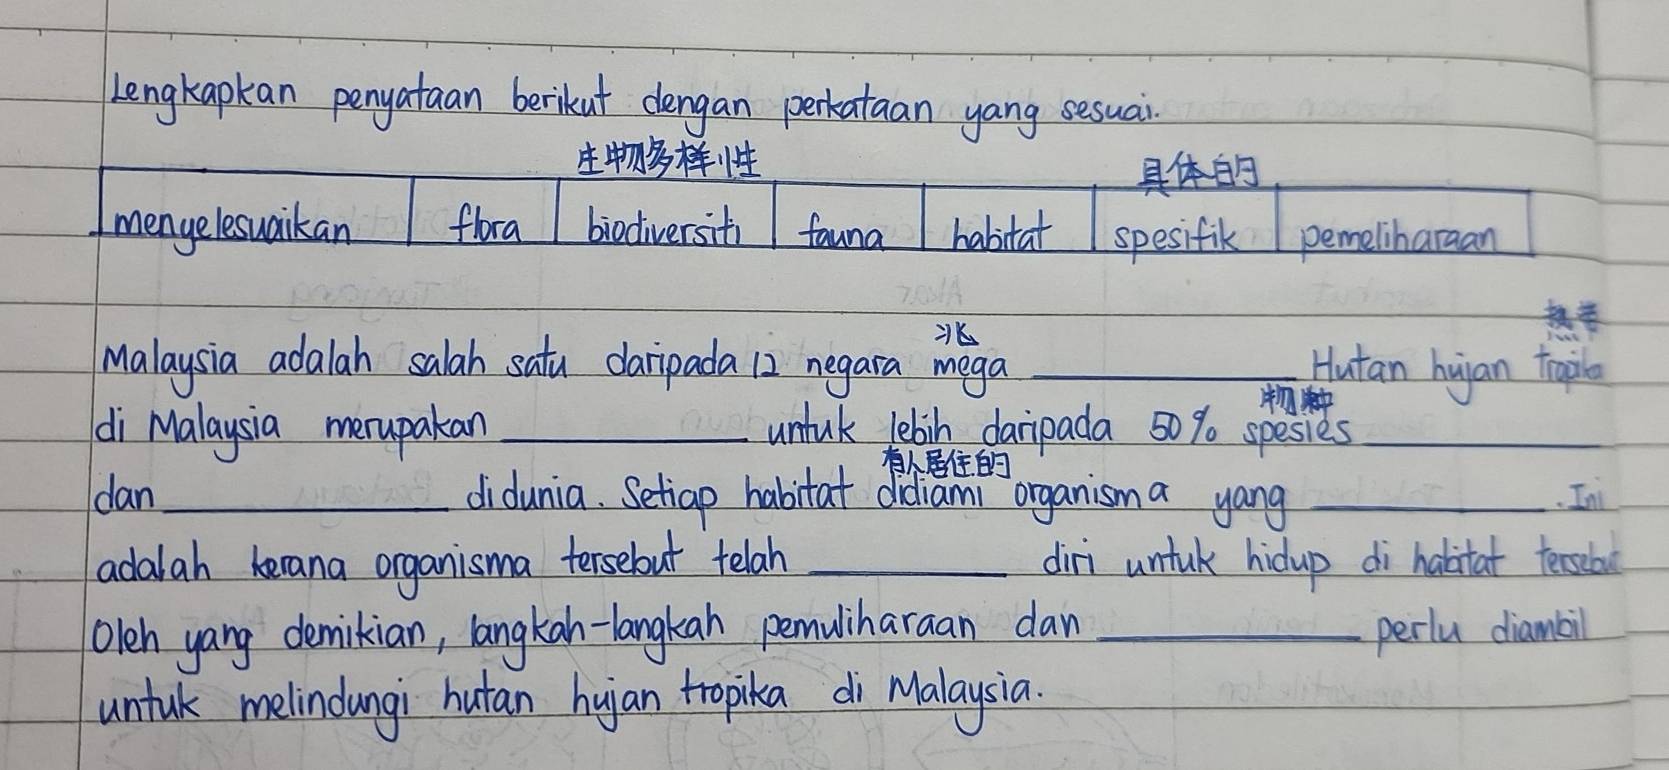 Lengkapkan penyataan berikut dengan perkataan yang sesuai.
生物多样性 具体的
menyelesuaikan flora biodiversiti fauna habitat spesifik pemeliharaan
兆 热带
Malaysia adalah salah satu daripada 12 negara mega ____________ Hutan hujan tropika
物种
di Malaysia merupakan ____________ untuk lebih daripada 50% spesies ____________
有人居住的
dan ____________ di dunia. Setiap habitat didiami organisma yang ____________. Ini
adalah kerana organisma tersebut telah ____________ diri untuk hidup di habitat tersebut
Oleh yang demikian, langkah-langkah pemuliharaan dan ____________ perlu diambil
untuk melindungi hutan hujan tropika di Malaysia.